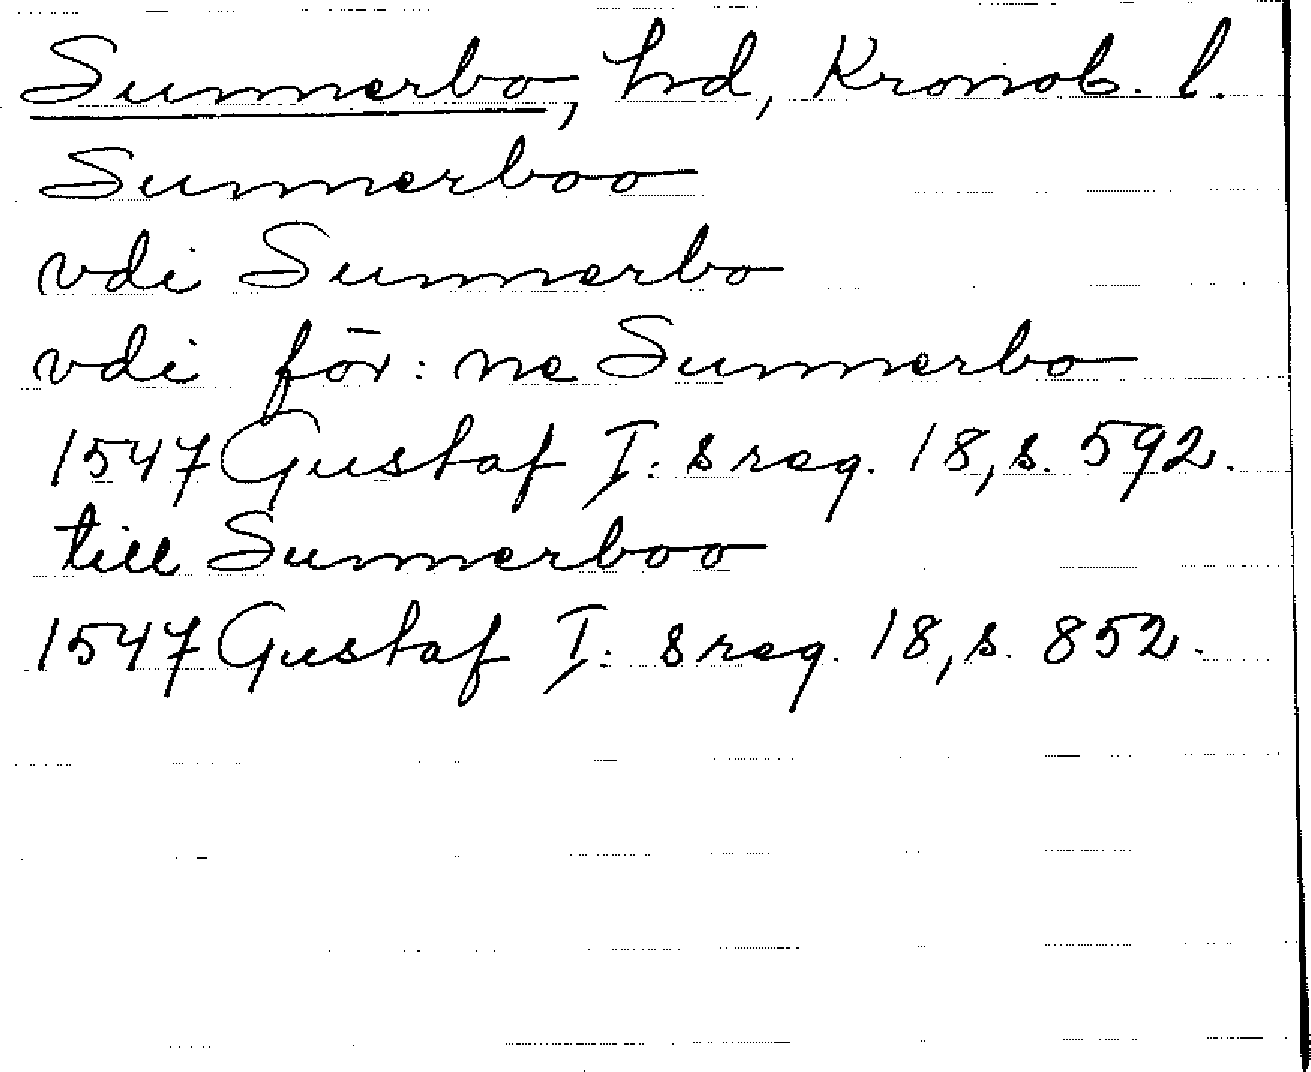 Sunnerbo, hd, Kronob. l.
Sunnerboo
vdi Sunnerbo
vdi för: ne Sunnerbo
1547 Gustaf I: s reg. 18, s. 592.
till Sunnerboo
1547 Gustaf I: s reg. 18, s. 852.